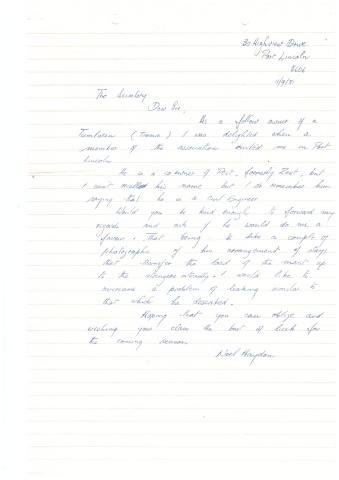 30 Highview Drive
Port Lincoln
5606
11/9/81
The Secretary
Dear Sir,
As a fellow owner of a
Tumlaren (Trauna) I was delighted when a
member of the association visited me in Port
Lincoln
He is a co-owner of Post, formerly Zest, but
I can't recall his name but I do remember him
saying that he is a Civil Engineer
Would you be kind enough to forward my
regards and ask if he would do me a
favour. That being to take a couple of
photographs of his arrangement of stays
that transfer the load of the mast up
to the stringers internally. I would like to
overcome a problem of leaking similar to
that which he described.
Hoping that you can oblige and
wishing your class the best of luck for
the coming season
Noel Haydon